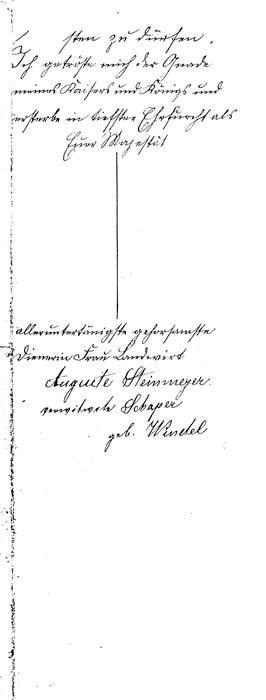 sten zu dürfen.
Ich getröste mich der Gnade
meines Kaisers und Königs und
ersterbe in tiefster Ehrfurcht als
Euer Majestät
alleruntertänigste gehorsamste
Dienerin Frau Landwirt
Auguste Steinmeyer.
verwitwete Schaper
geb. Wendel